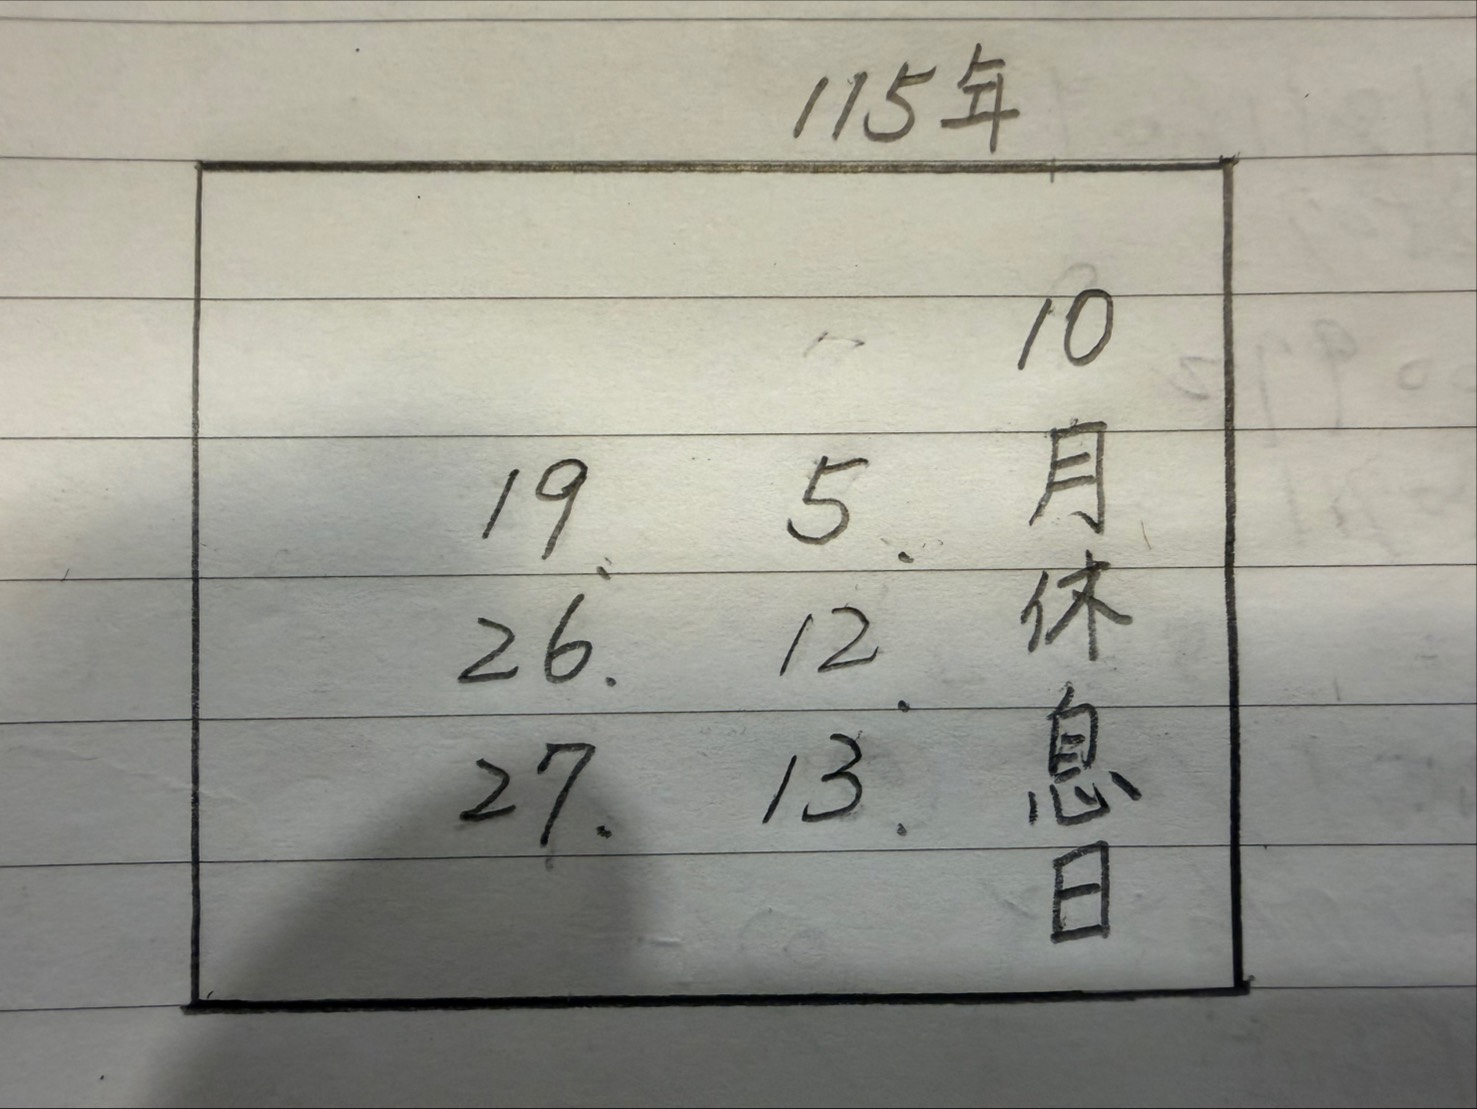 115年
10月休息日
5.
12.
13.
19.
26.
27.